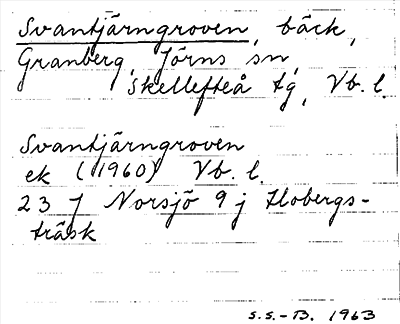 Svantjärngroven, bäck,
Granberg, Jörns sn,
Skellefteå tg, Vb. l.
Svantjärngroven
ek (1960) Vb. l.
23 J Norsjö 9 j Flobergs-
träsk
S.S.-B. 1963